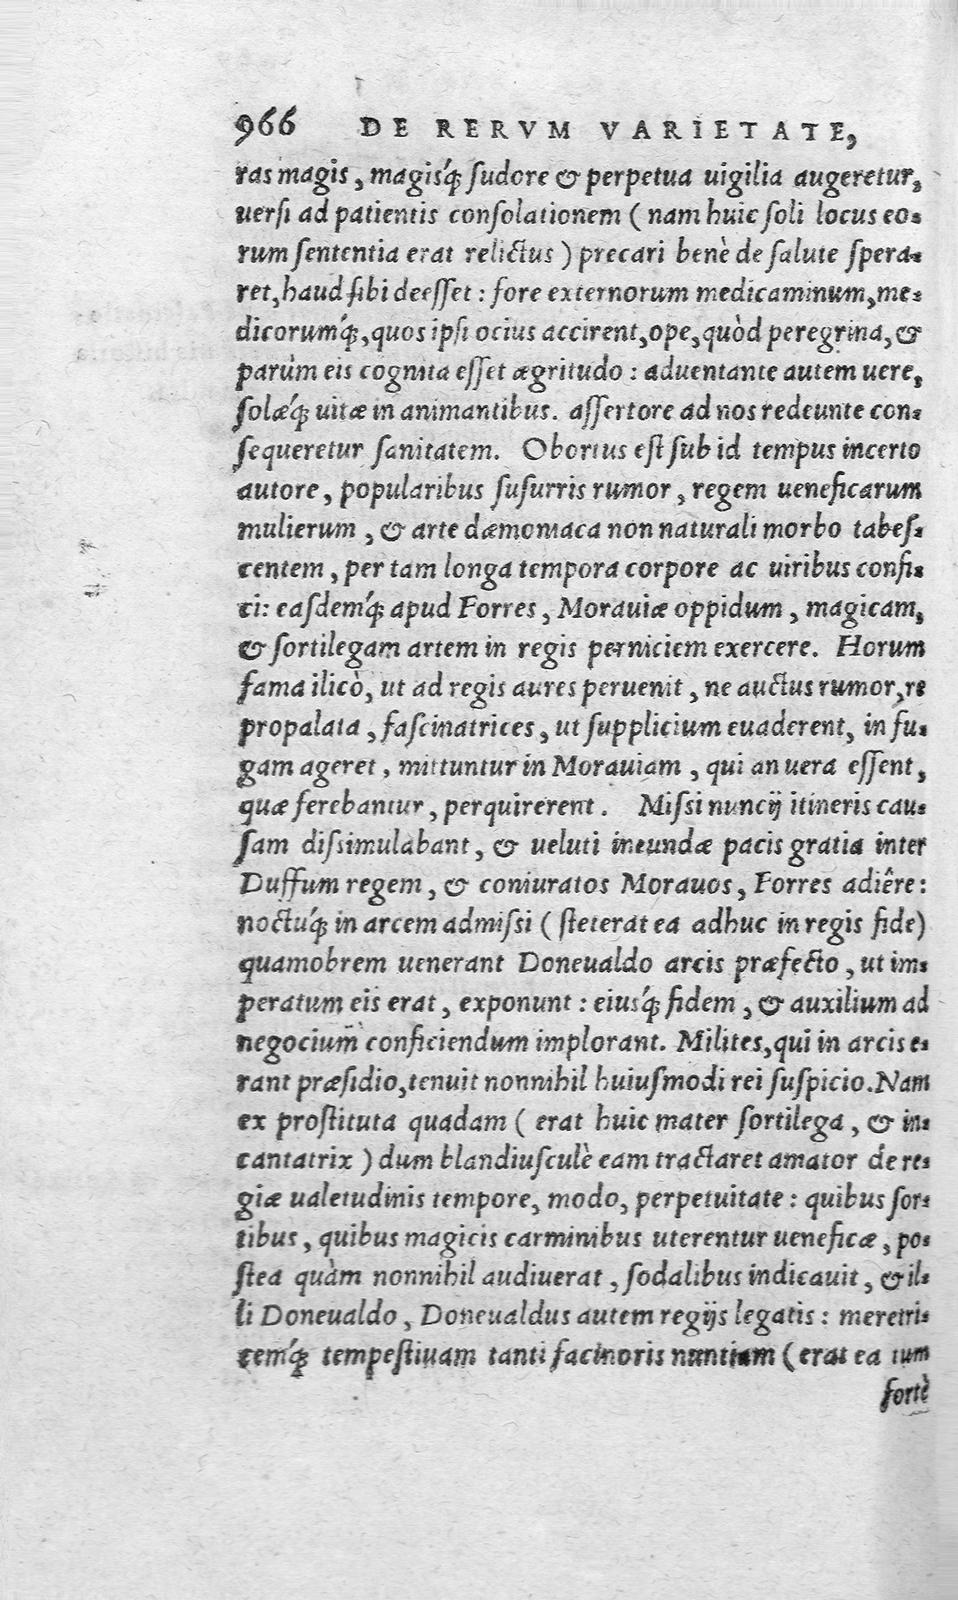 966 DE RERVM VARIETATE,
ras magis, magisq́; sudore & perpetua uigilia augeretur,
uersi ad patientis consolationem (nam huic soli locus eo-
rum sententia erat relictus) precari benè de salute spera-
ret, haud sibi deesset: fore externorum medicaminum, me-
dicorumq́;, quos ipsi ocius accirent, ope, quòd peregrina, &
parùm eis cognita esset ægritudo: aduentante autem uere,
solæq́; uitæ in animantibus. assertore ad nos redeunte con-
sequeretur sanitatem. Obortus est sub id tempus incerto
autore, popularibus susurris rumor, regem ueneficarum
mulierum, & arte dæmoniaca non naturali morbo tabes-
centem, per tam longa tempora corpore ac uiribus confi-
ci: easdemq́; apud Forres, Morauiæ oppidum, magicam,
& sortilegam artem in regis perniciem exercere. Horum
fama ilicò, ut ad regis aures peruenit, ne auctus rumor, re
propalata, fascinatrices, ut supplicium euaderent, in fu-
gam ageret, mittuntur in Morauiam, qui an uera essent,
quæ ferebantur, perquirerent. Missi nuncij itineris cau-
sam dissimulabant, & ueluti ineundæ pacis gratia inter
Duffum regem, & coniuratos Morauos, Forres adiêre:
noctuq́; in arcem admissi (steterat ea adhuc in regis fide)
quamobrem uenerant Doneualdo arcis præfecto, ut im-
peratum eis erat, exponunt: eiusq́; fidem, & auxilium ad
negocium conficiendum implorant. Milites, qui in arcis e-
rant præsidio, tenuit nonnihil huiusmodi rei suspicio. Nam
ex prostituta quadam (erat huic mater sortilega, & in-
cantatrix) dum blandiusculè eam tractaret amator de re-
giæ ualetudinis tempore, modo, perpetuitate: quibus sor-
tibus, quibus magicis carminibus uterentur ueneficæ, po-
stea quàm nonnihil audiuerat, sodalibus indicauit, & il-
li Doneualdo, Doneualdus autem regijs legatis: meretri-
cemq́; tempestiuam tanti facinoris nuntiam (erat ea tum
fortè